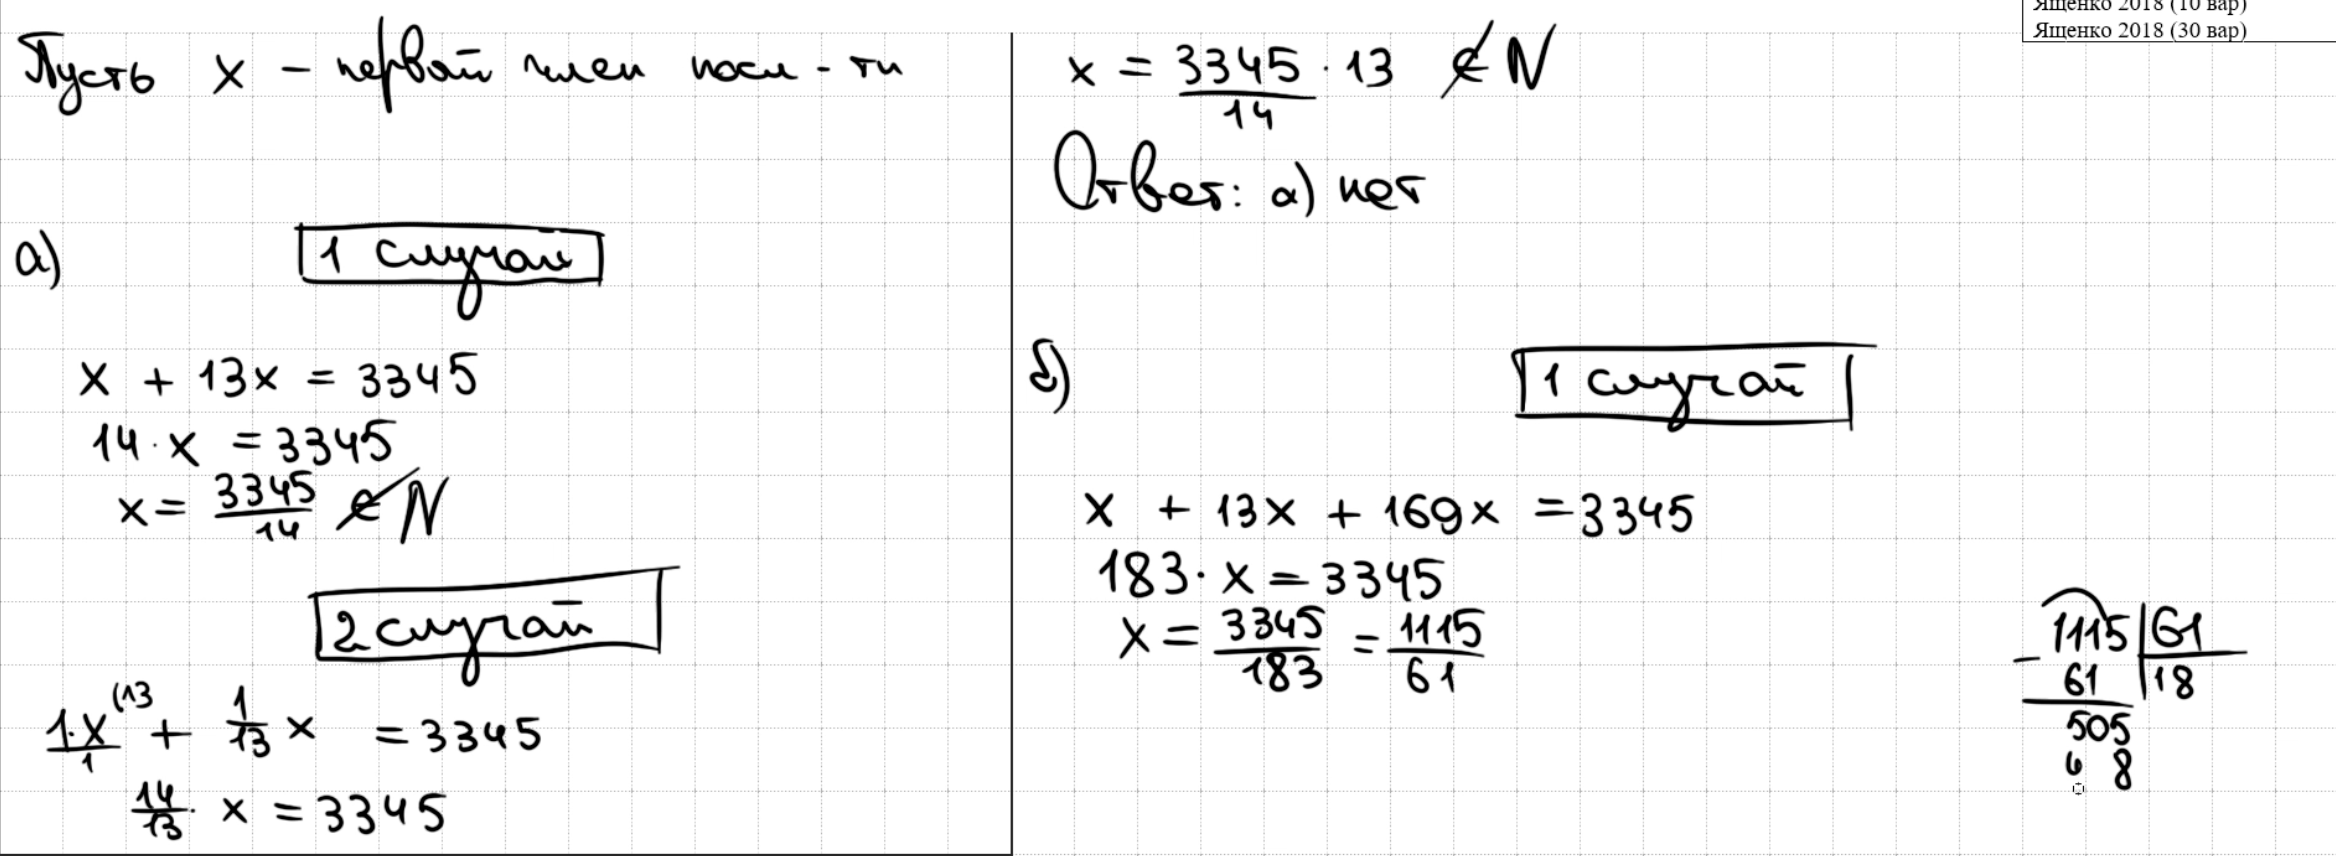 Ященко 2018 (10 вар)
Ященко 2018 (30 вар)
Пусть x – первый член посл-ти
а) 1 случай
x + 13x = 3345
14·x = 3345
x = 3345/14 ∉ N
2 случай
1·x/1 (13 + 1/13 x = 3345
14/13 · x = 3345
x = 3345/14 · 13 ∉ N
Ответ: а) нет
б) 1 случай
x + 13x + 169x = 3345
183·x = 3345
x = 3345/183 = 1115/61
1115 | 61
− 61 | 18
505
4 8